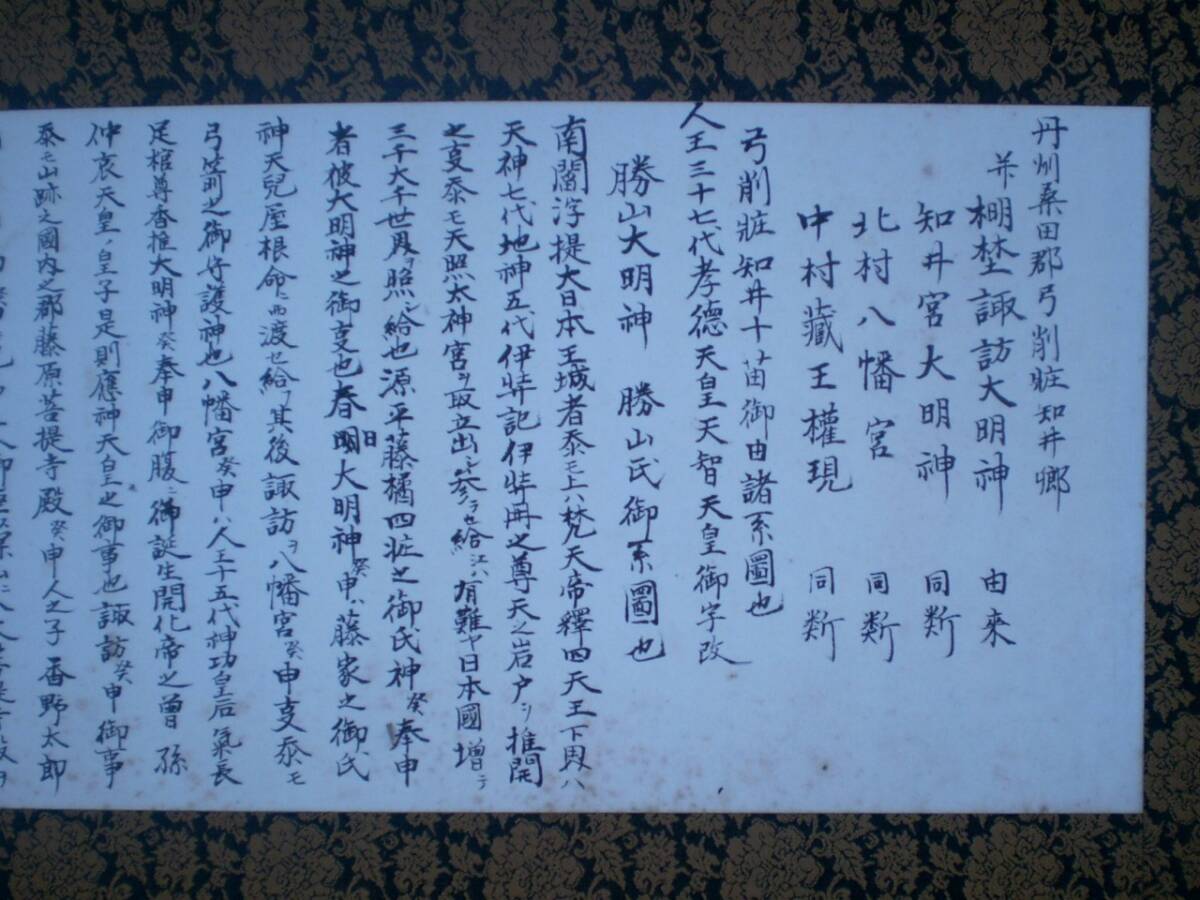 丹州桑田郡弓削荘知井郷
并棚埜諏訪大明神 由来
知井宮大明神 同断
北村八幡宮 同断
中村蔵王權現 同断
弓削荘知井十苗御由諸系圖也
人王三十七代孝徳天皇天智天皇御字改
勝山大明神 勝山氏御系圖也
南閻浮提大日本王城者忝モ上ハ梵天帝釋四天王下界ハ
天神七代地神五代伊弉記伊弉冊之尊天之岩戸ヲ推開
之支忝モ天照太神宮ヲ取立出シ参ラセ給江ハ有難ヤ日本國増テ
三千大千世界ヲ照シ給也源平藤橘四荘之御氏神癸奉申
者彼大明神之御支也春日大明神癸申ハ藤家之御氏
神天兒屋根命ニ而渡セ給フ其後諏訪ヲ八幡宮癸申支忝モ
弓箭之御守護神也八幡宮癸申ハ人王十五代神功皇后氣長
足棺尊香推大明神癸奉申御腹ニ御誕生開化帝之曽孫
仲哀天皇ノ皇子是則應神天皇之御事也諏訪癸申御事
忝モ山跡之國内之郡藤原菩提寺殿癸申人之子香野太郎